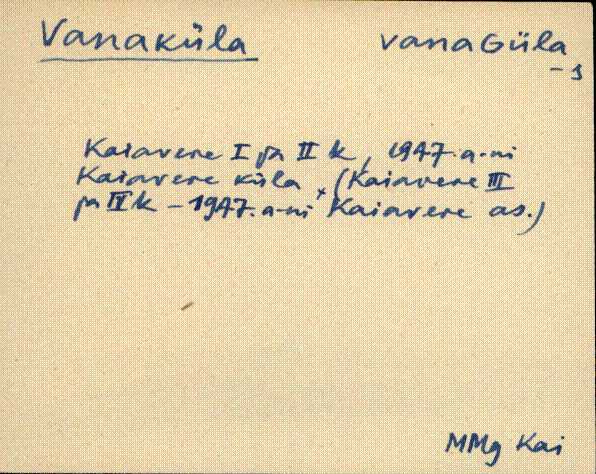 Vanaküla vanaGüla
-s
Kaiavere I ja II k, 1947.a-ni
Kaiavere küla x (Kaiavere III
ja IV k - 1947.a-ni Kaiavere as.)
MMg Kai